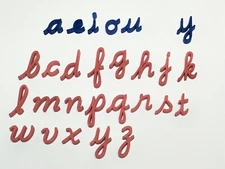 a e i o u y
b c d f g h j k
l m n p q r s t
w v x y z